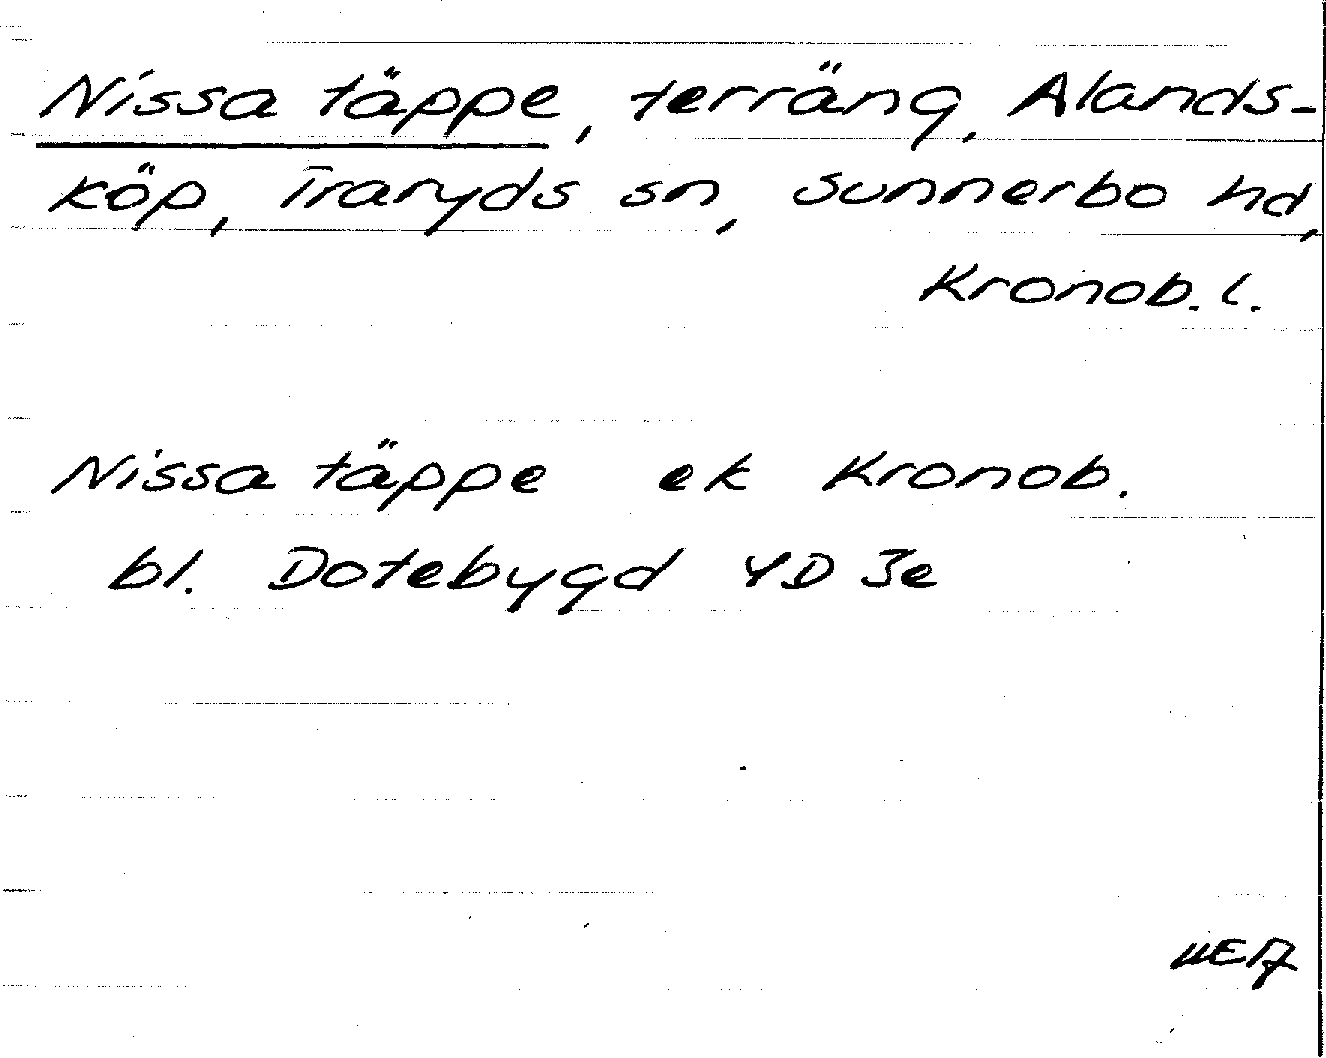 Nissa täppe, terräng, Alands-
köp, Traryds sn, Sunnerbo hd,
Kronob. l.
Nissa täppe ek Kronob.
bl. Dotebygd 4D 3e